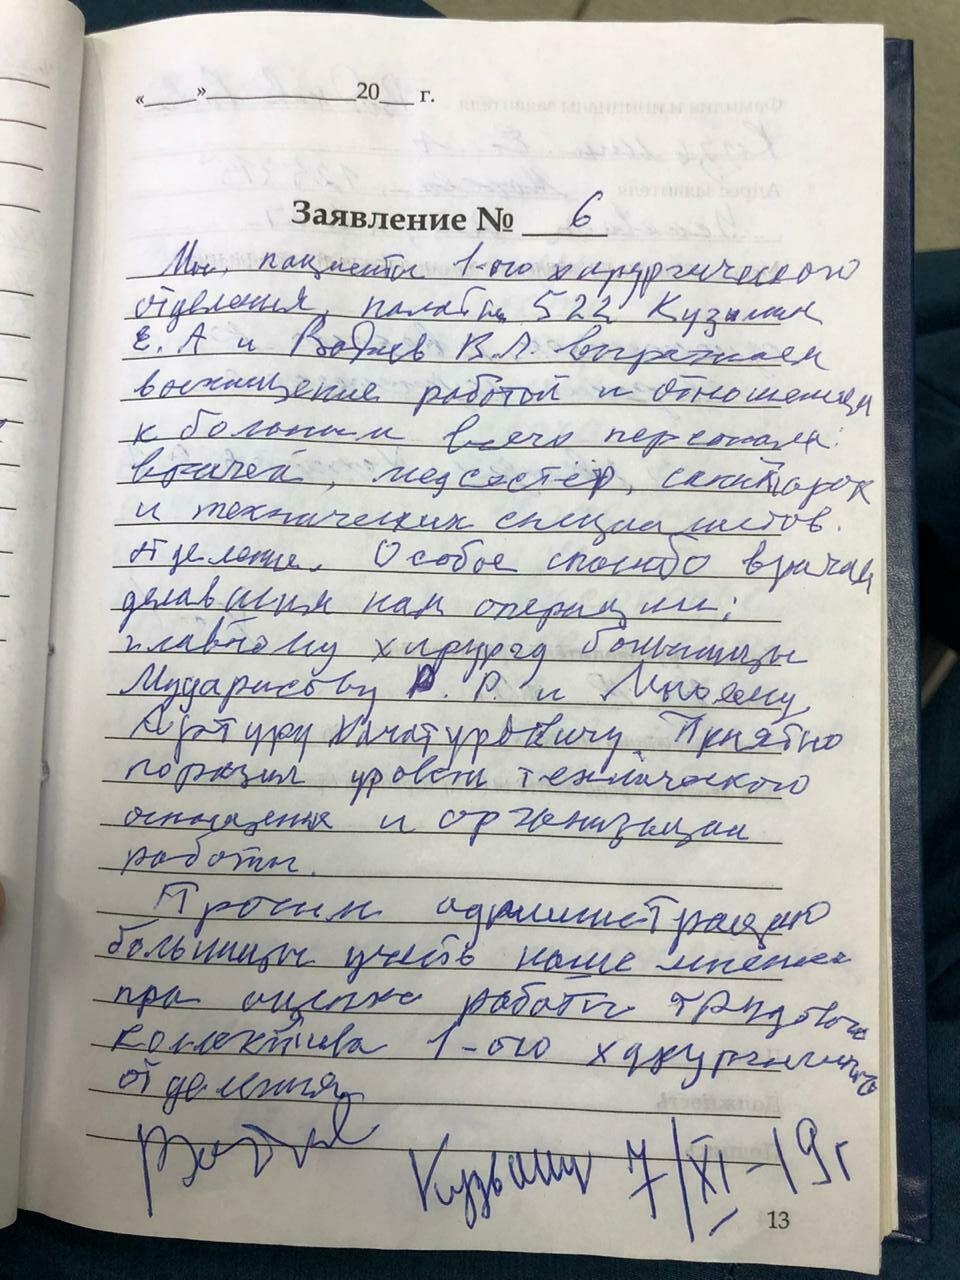 «____»____________20___ г.
Заявление № 6
Мы, пациенты 1-ого хирургического
отделения, палаты 522 Кузьмин
Е. А и В. А. выражаем
восхищение работой и отношением
к больным всего персонала:
врачей, медсестёр, санитарок
и технических специалистов.
отделения. Особое спасибо врачам
делавшим нам операции:
главному хирургу больницы
Мударисову Р. Р. и
Артуру Хачатуровичу. Приятно
поразил уровень технического
оснащения и организации
работы.
Просим администрацию
больницы учесть наше мнение
при оценке работы трудового
коллектива 1-ого хирургического
отделения
Кузьмин 7/XI-19г
13